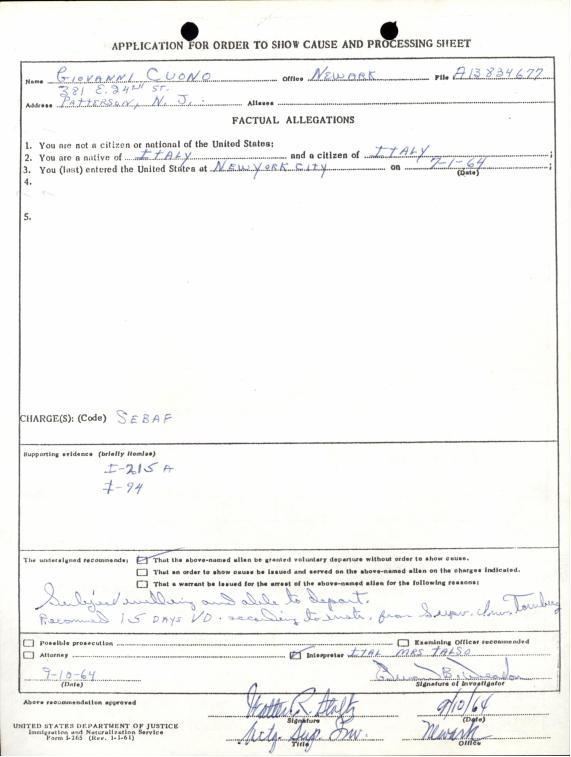 APPLICATION FOR ORDER TO SHOW CAUSE AND PROCESSING SHEET
Name GIOVANNI CUONO Office NEWARK File A13 834 677
381 E. 24TH ST.
Address PATTERSON, N. J. Aliases
FACTUAL ALLEGATIONS
1. You are not a citizen or national of the United States;
2. You are a native of ITALY and a citizen of ITALY ;
3. You (last) entered the United States at NEW YORK CITY on 7-1-64 ;
(Date)
4.
5.
CHARGE(S): (Code) SEBAF
Supporting evidence (briefly itemize)
I-215 A
I-94
The undersigned recommends: That the above-named alien be granted voluntary departure without order to show cause.
That an order to show cause be issued and served on the above-named alien on the charges indicated.
That a warrant be issued for the arrest of the above-named alien for the following reasons:
Subject willing and able to depart.
Recommend 15 DAYS V.D. according to instr. from Superv.
Possible prosecution Examining Officer recommended
Attorney Interpreter ITAL MRS TALSO
9-10-64
(Date) Signature of Investigator
Above recommendation approved
Walter R. 9/10/64
Signature (Date)
Actg. Sup. Inv. Newark
Title Office
UNITED STATES DEPARTMENT OF JUSTICE
Immigration and Naturalization Service
Form I-265 (Rev. 1-1-61)